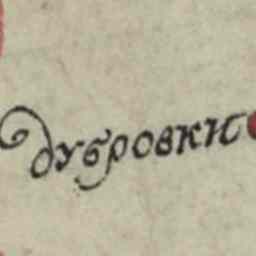 дубровки